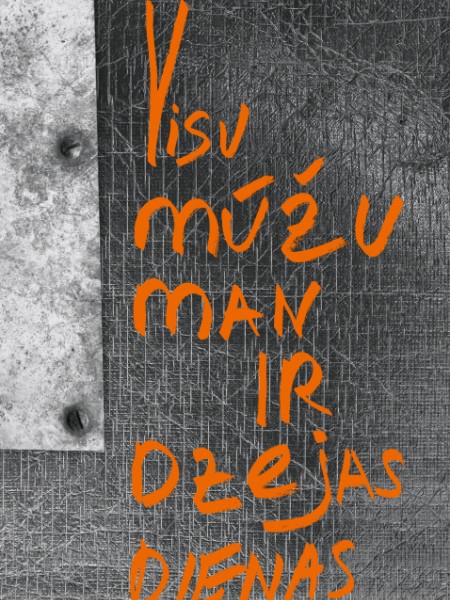 Visu
mūžu
MAN
IR
Dzejas
DIENAS